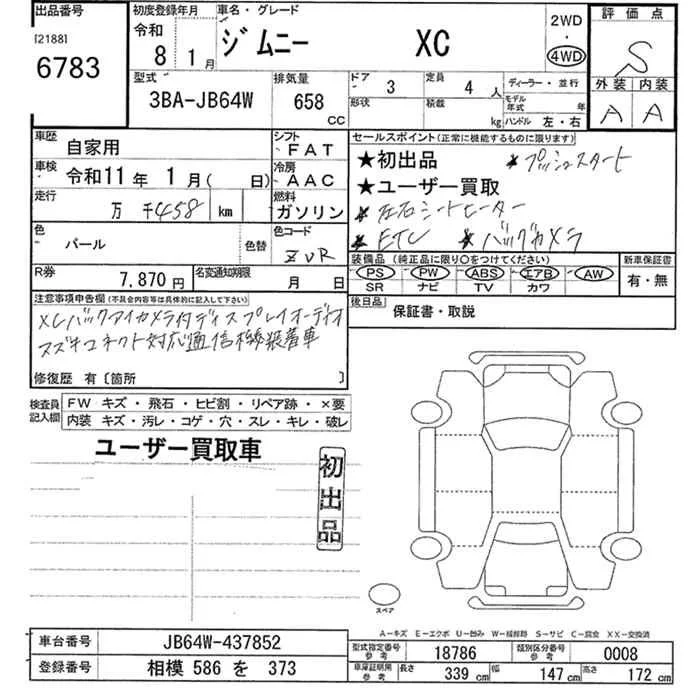 出品番号
[2188]
6783
初度登録年月
令和
8 1月
車名・グレード
ジムニー XC
2WD
・
4WD
評価点
S
外装 内装
A A
型式
3BA-JB64W
排気量
658
CC
ドア
3
定員
4 人
形状
積載
kg
ディーラー・並行
モデル年式 年
ハンドル 左・右
車歴
自家用
シフト
FAT
車検
令和11年 1月( 日)
冷房
AAC
走行
万 千458 km
燃料
ガソリン
色
パール
色替
色コード
ZVR
R券
7,870円
名変通知期限
月 日
セールスポイント(正常に機能するものに限ります)
★初出品 ★プッシュスタート
★ユーザー買取
★左右シートヒーター
★ETC ★バックカメラ
装備品(純正品に限り○をつけてください)
PS PW ABS エアB AW
SR ナビ TV カワ
新車保証書
有・無
後日品
保証書・取説
注意事項申告欄(不具合内容等は具体的に記入して下さい)
XCバックアイカメラ付ディスプレイオーディオ
スズキコネクト対応通信機装着車
修復歴 有〔箇所 〕
検査員
記入欄
FW キズ・飛石・ヒビ割・リペア跡・×要
内装 キズ・汚レ・コゲ・穴・スレ・キレ・破レ
ユーザー買取車
初出品
スペア
A−キズ E−エクボ U−凹み W−補修跡 S−サビ C−腐食 XX−交換済
車台番号
JB64W-437852
登録番号
相模 586 を 373
型式指定番号
参考
18786
類別区分番号
参考
0008
車庫証明用
参考
長さ
339 cm
幅
147 cm
高さ
172 cm